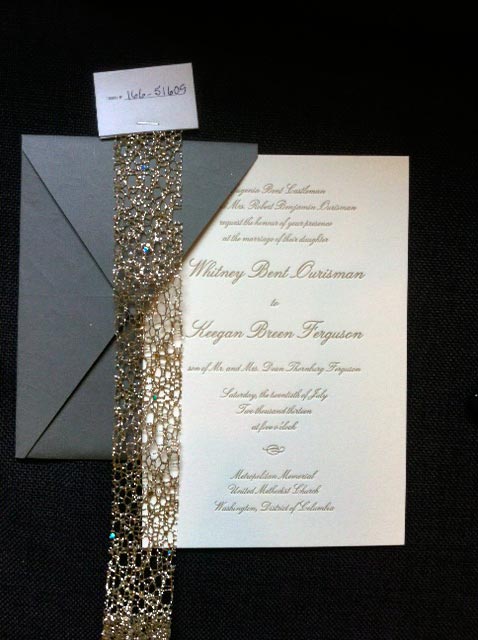 166-51605
Bent Castleman
Mrs. Robert Benjamin Ourisman
request the honour of your presence
at the marriage of their daughter
Whitney Bent Ourisman
to
Keegan Breen Ferguson
son of Mr. and Mrs. Dean Thornburg Ferguson
Saturday, the twentieth of July
Two thousand thirteen
at five o'clock
Metropolitan Memorial
United Methodist Church
Washington, District of Columbia